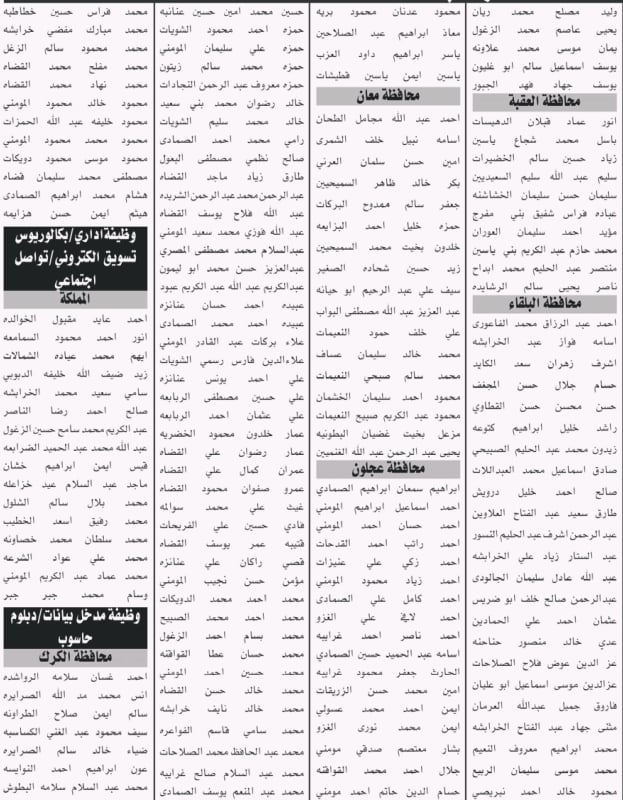 وليد مصلح محمد ريان
يحيى عاصم محمد الزغول
يمان موسى محمد علاونه
يوسف اسماعيل سالم ابو غليون
يوسف جهاد فهد الجبور
محافظة العقبة
انور عماد قبلان الدهيسات
باسل محمد شجاع ياسين
زياد حسين سالم الخضيرات
سليم عبد الله سليم السعيديين
سليمان حسن سليمان الخشاشنه
عباده فراس شفيق بني مفرج
مؤيد احمد سليمان العوران
محمد حازم عبد الكريم بني ياسين
منتصر عبد الحليم محمد ابداح
ناصر يحيى سالم الرشايده
محافظة البلقاء
احمد عبد الرزاق محمد الفاعوري
اسامه فواز عبد الخرابشه
اشرف زهران سعد الكايد
حسام جلال حسن المجغف
حسن محسن حسن القطاوي
راشد خليل ابراهيم كتوعه
زيدون محمد عبد الحليم الصبيحي
صادق اسماعيل محمد العبداللات
صالح احمد خليل درويش
طارق سعيد عبد الفتاح العلاوين
عبد الرحمن اشرف عبد الحليم النسور
عبد الستار زياد علي الخرابشه
عبد الله عادل سليمان الجالودي
عبدالرحمن صالح خلف ابو ضريس
عثمان احمد علي الحمادين
عدي خالد منصور حناحنه
عز الدين عوض فلاح الصلاحات
عزالدين موسى اسماعيل ابو عليان
فاروق جميل عبدالله العرمان
مثنى جهاد عبد الفتاح الخرابشه
محمد ابراهيم معروف النعيم
محمد موسى سليمان الربيع
محمود خالد احمد نبريصي
محمود عدنان محمود بريه
معاذ ابراهيم عبد الصلاحين
ياسر ابراهيم داود العزب
ياسين ايمن ياسين قطيشات
محافظة معان
احمد عبد الله مجامل الطحان
اسامه نبيل خلف الشمرى
امين حسن سلمان العرني
بكر خالد ظاهر السميحيين
جعفر سالم ممدوح البركات
حمزه خليل احمد البزايعه
خلدون بخيت محمد السميحيين
زيد حسين شحاده الصغير
سيف علي عبد الرحيم ابو حيانه
عبد العزيز عبد الله مصطفى البواب
علي خلف حمود النعيمات
محمد خالد سليمان عساف
محمد سالم صبحي النعيمات
محمود احمد سليمان الخشمان
محمود عبد الكريم صبيح النعيمات
مزعل بخيت غضيان البطونيه
يحيى عبد الرحمن عبد الله الغنميين
محافظة عجلون
ابراهيم سمعان ابراهيم الصمادي
احمد اسماعيل ابراهيم المومني
احمد حسان احمد المومني
احمد راتب احمد القدحات
احمد زكي علي عنيزات
احمد زياد محمود المومني
احمد كامل علي الصمادى
احمد لافي علي الغزو
احمد ناصر احمد غرايبه
اسامه عبد الحميد حسين الصمادي
الحارث جعفر محمود غرايبه
امين محمد حسن الزريقات
ايمن احمد محمد عسولي
ايمن محمد نورى الغزو
بشار معتصم صدقي مومني
جلال احمد محمد القواقنه
حسام الدين حاتم احمد مومني
حسين محمد امين حسين عنانبه
حمزه احمد محمود الشويات
حمزه علي سليمان المومني
حمزه محمد سالم زيتون
حمزه معروف عبد الرحمن النجادات
خالد رضوان محمد بني سعيد
خالد محمد سليم الشويات
رامي محمد احمد الصمادى
صالح نظمي مصطفى البعول
طارق زياد ماجد القضاه
عبد الرحمن محمد عبد الرحمن الشريده
عبد الله فلاح يوسف القضاه
عبد الله فوزي محمد سعيد المومني
عبدالسلام محمد مصطفى المصري
عبدالعزيز حسن محمد ابو ليمون
عبدالكريم عبد الله عبد الكريم عبود
عبيده احمد حسان عنانزه
عبيده احمد محمد الصمادى
علاء بركات عبد القادر المومني
علاءالدين فارس رسمي الشويات
علي احمد يونس عنانزه
علي حسين مصطفى الربابعه
علي عثمان احمد الربابعه
عمار خلدون محمود الخضريه
عمار رضوان علي القضاه
عمران كمال علي القضاه
عمرو صفوان محمود القضاه
غيث علي محمد سوالمه
فادي حسين علي الفريحات
قتيبه عمر يوسف القضاه
قصي راكان علي عنانزه
مؤمن حسن نجيب المومني
محمد احمد محمد الدويكات
محمد احمد محمد الصبيح
محمد بسام احمد الزغول
محمد حسان عطا القواقنه
محمد حسين احمد المومني
محمد خالد حسن القضاه
محمد خالد نايف خرابشه
محمد سامي قاسم الفواعره
محمد عبد الحافظ محمد الصلاحات
محمد عبد السلام صالح غرايبه
محمد عبد المنعم يوسف الصمادى
محمد فراس حسين خطاطبه
محمد مبارك مفضي خرابشه
محمد محمود سالم الزغل
محمد مفلح محمد القضاه
محمد نهاد محمد القضاه
محمود خالد محمود المومني
محمود خليفه عبد الله الحمزات
محمود محمد محمود المومني
محمود موسى محمود دويكات
مصطفى محمد سليمان قضاه
هشام محمد ابراهيم الصمادى
هيثم ايمن حسن هزايمه
وظيفة اداري/بكالوريوس
تسويق الكتروني/تواصل
اجتماعي
المملكة
احمد عايد مقبول الخوالده
انور احمد محمود السمامعه
ايهم محمد عياده الشمالات
زيد ضيف الله خليفه الدبوبي
سامي سعيد محمد الخرابشه
صالح احمد رضا الناصر
عبد الكريم محمد سامح حسين الزغول
عبد الله محمد عبد الحميد الضرابعه
قيس ايمن ابراهيم خشان
ماجد عبد السلام عيد خزاعله
محمد بلال سالم الشلول
محمد رفيق اسعد الخطيب
محمد سلطان محمد خصاونه
محمد علي عواد الشرعه
محمد عماد عبد الكريم المومني
وسام محمد جبر جبر
وظيفة مدخل بيانات/دبلوم
حاسوب
محافظة الكرك
احمد غسان سلامه الرواشده
انس محمد مد الله الصرايره
سالم ايمن صلاح الطراونه
سيف محمود عبد الغني الكساسبه
ضياء خالد سالم الصرايره
عون ابراهيم احمد النوايسه
محمد عبد السلام سلامه البطوش